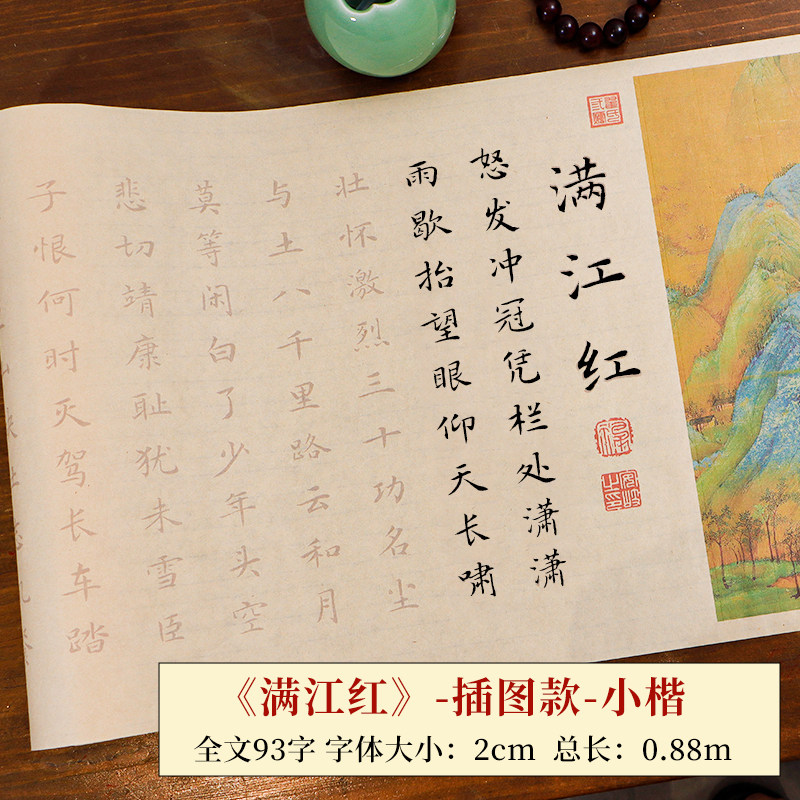 满江红
怒发冲冠凭栏处潇潇
雨歇抬望眼仰天长啸
壮怀激烈三十功名尘
与土八千里路云和月
莫等闲白了少年头空
悲切靖康耻犹未雪臣
子恨何时灭驾长车踏
《满江红》-插图款-小楷
全文93字 字体大小：2cm 总长：0.88m